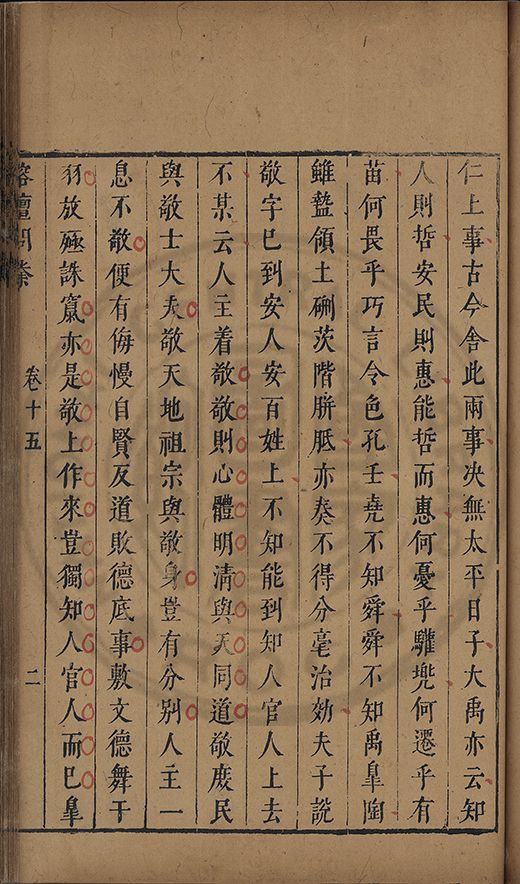 仁上事古今舍此兩事決無太平日子大禹亦云知
人則哲安民則惠能哲而惠何憂乎驩兜何遷乎有
苗何畏乎巧言令色孔壬堯不知舜舜不知禹皐陶
雖蟄領土硎茨階胼胝亦奏不得分毫治効夫子說
敬字已到安人安百姓上不知能到知人官人上去
不某云人主着敬敬則心體明清與天同道敬庶民
與敬士大夫敬天地祖宗與敬身豈有分别人主一
息不敬便有侮慢自賢反道敗德底事敷文德舞干
羽放殛誅竄亦是敬上作來豈獨知人官人而已皐
榕壇問業
卷十五
二